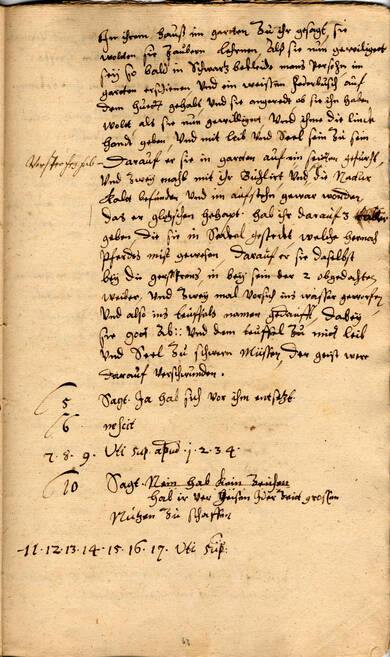 In ihrem hauß im garten zu ihr gesagt, sie
wolten sie zaubern lehrnen, Alß sie nun gewilliget
sey so bald in Schwartz bekleide mans Persohn im
garten erschienen und ein weissen federbusch auf
dem huett gehabt und sie angeredt ob sie ihn haben
wolt alß sie nun gewilliget und ihme die lincke
hand geben und mit leib und Seel sein zu sein
Darauf er sie in garten auf ein seithen gefürt,
und zwey mahl mit ihr gebuhlet und die Natur
kalt befunden und im aufstehn gewar worden
das er gehabt hab ihr darauf 3
geben die sie in Seckel gesteckt welche hernach
Pferdes mist gewesen Darauf er sie daselbst
bey die in bey sein der 2 obgedachten
weiber, und zwey mal vorsich ins wasser geworfen
und also ins teuffels namen getaufft, dabey
sie gott ab: und dem teuffel zu mit leib
und Seel zu schwern müssen, der geist were
darauf verschwunden.
5 Sagt Ja hab sich vor ihm entsetzt
6 nescit
7. 8. 9. Uti sup. apud 1. 2. 3. 4.
10 Sagt Nein hab kein
hab ir der grossen
Nutzen zu schaffen
11. 12. 13. 14. 15. 16. 17. Uti sup: